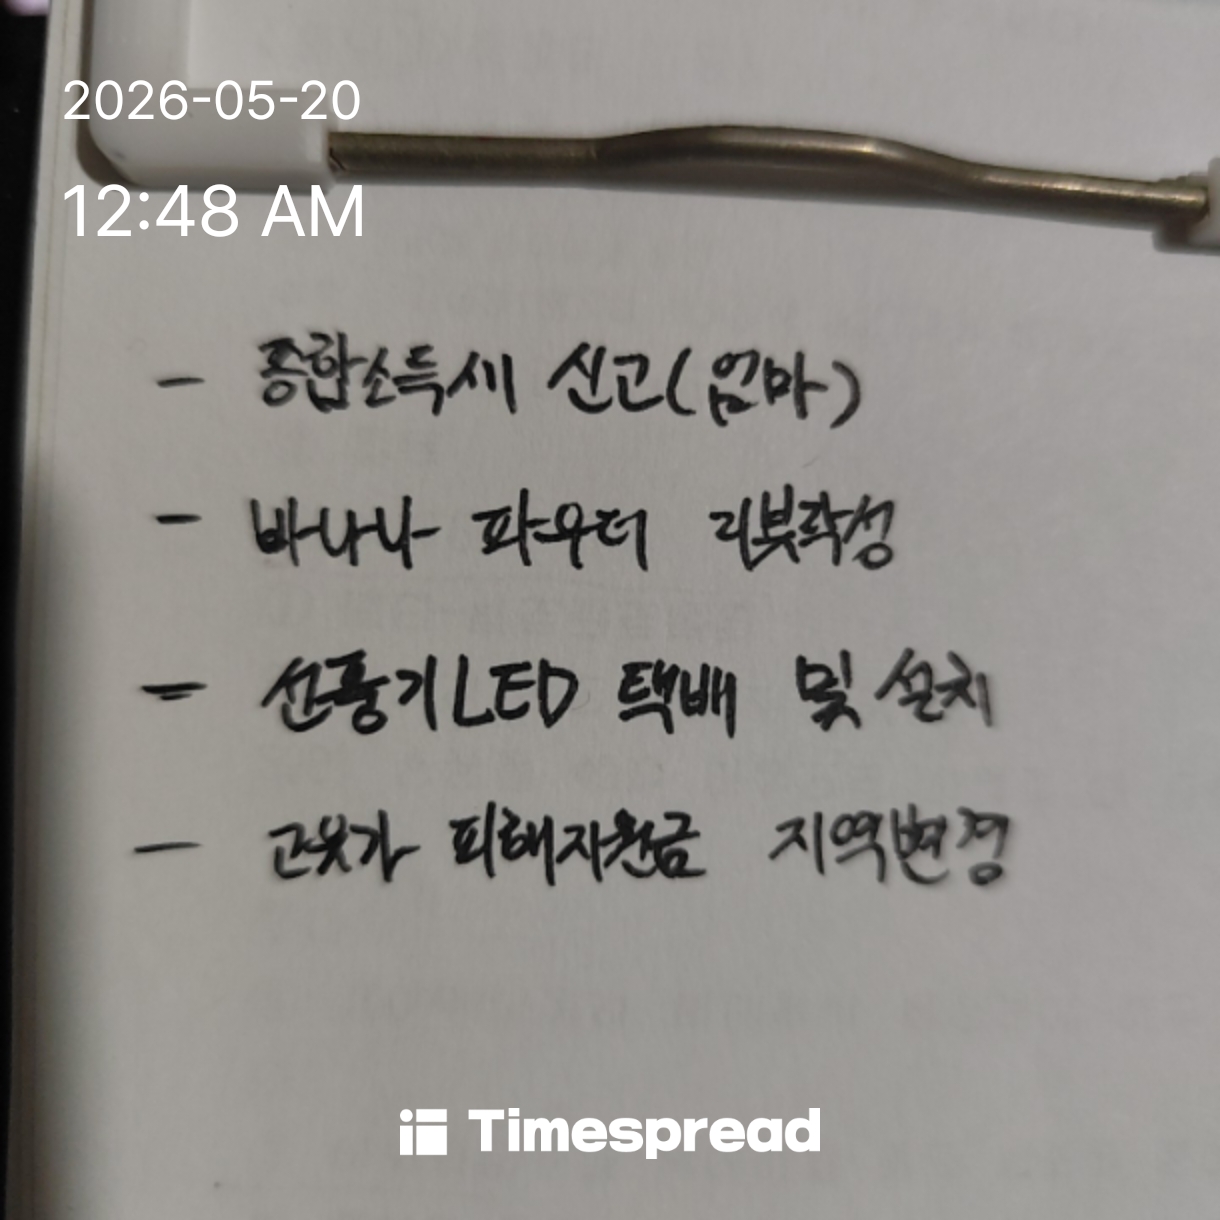 2026-05-20
12:48 AM
- 종합소득세 신고(엄마)
- 바나나 파우더 리뷰작성
- 선풍기 LED 택배 및 설치
- 고유가 피해지원금 지역변경
Timespread